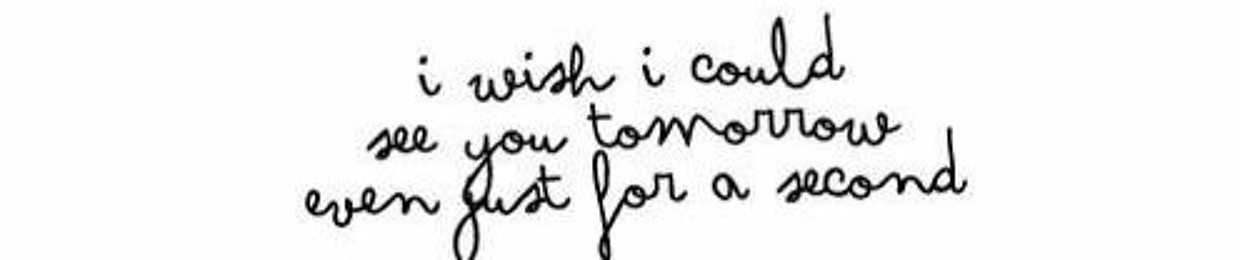 i wish i could
see you tomorrow
even just for a second